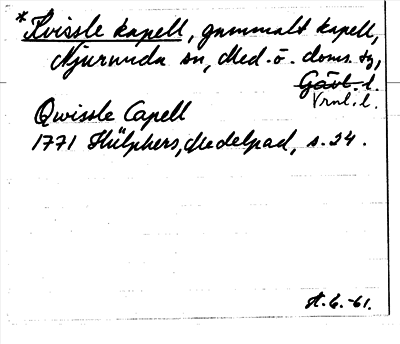 *Kvissle kapell, gammalt kapell,
Njurunda sn, Med.ö. doms. tg,
Gävl. l.
Vrnl. l.
Qwissle Capell
1771 Hülphers, Medelpad, s. 24.
H. G. -61.